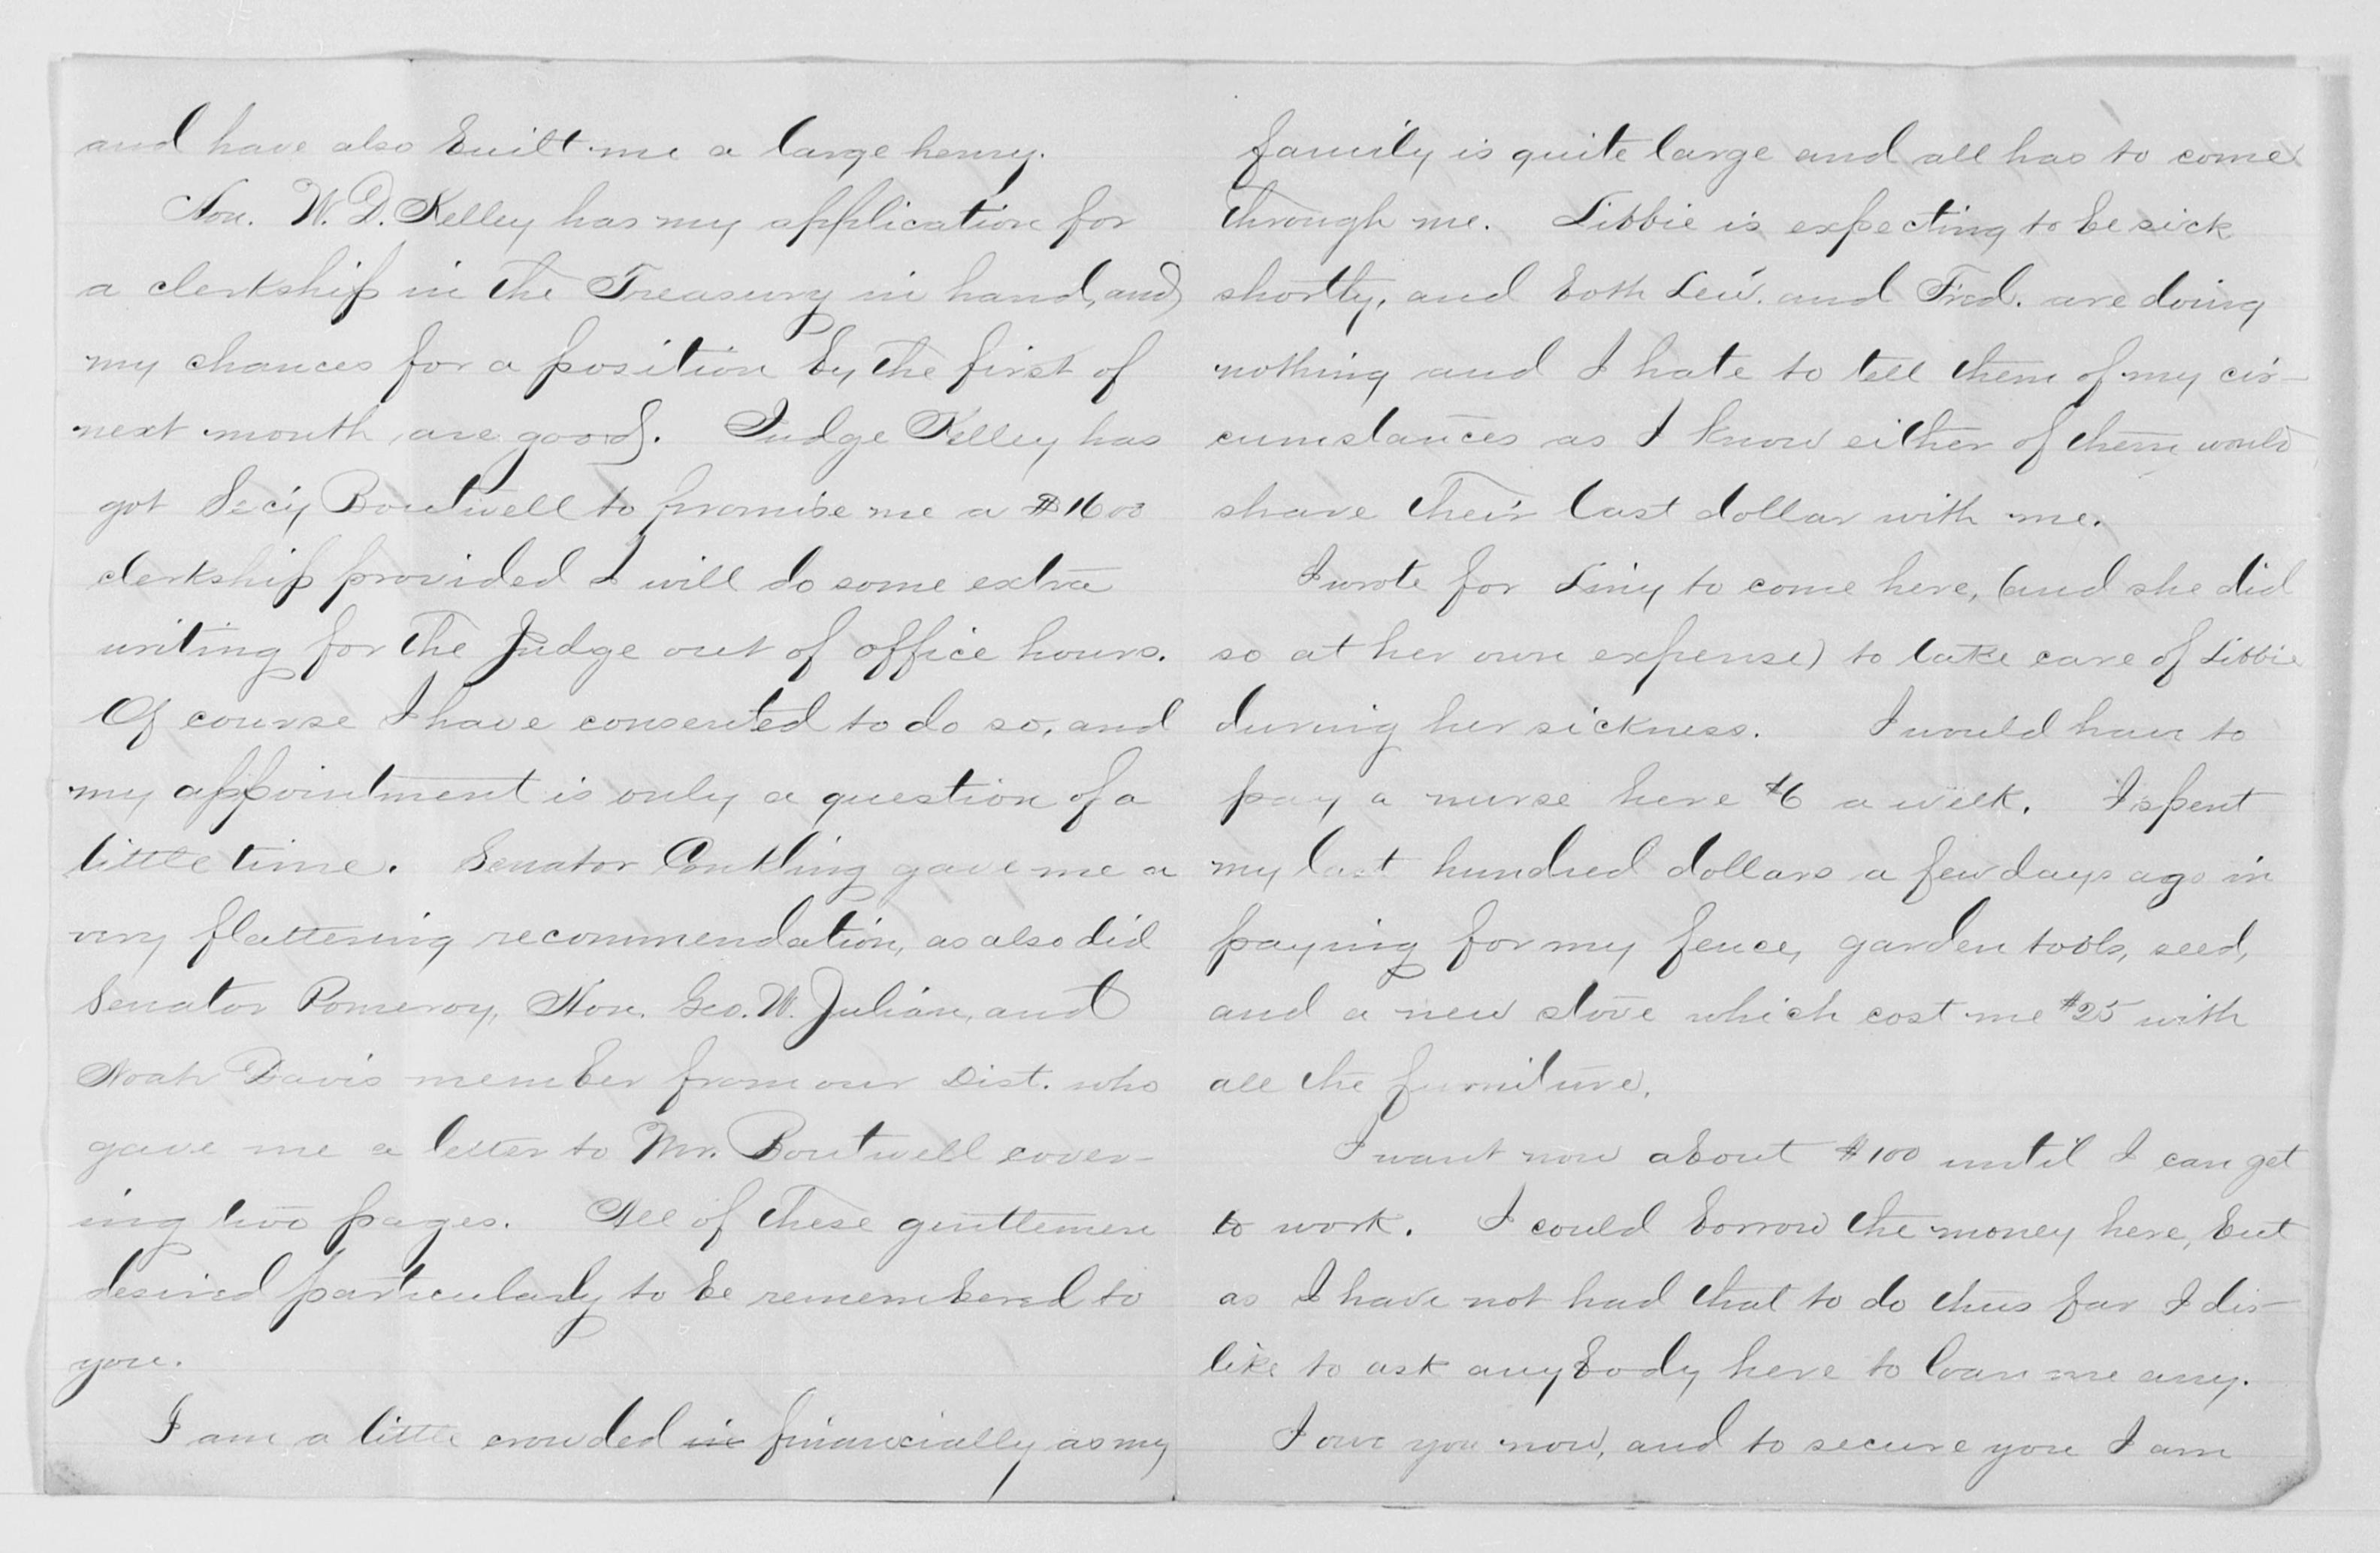 and have also built me a large henry.
Hon. W. D. Kelley has my application for
a clerkship in the Treasury in hand, and
my chances for a position by the first of
next month, are good. Judge Kelley has
got Sec'y Boutwell to promise me a $1600
clerkship provided I will do some extra
writing for the Judge out of office hours.
Of course I have consented to do so, and
my appointment is only a question of a
little time. Senator Conkling gave me a
very flattering recommendation, as also did
Senator Pomeroy, Hon. Geo. W. Julian, and
Noah Davis member from our Dist. who
gave me a letter to Mr. Boutwell cover-
ing two pages. All of these gentlemen
desired particularly to be remembered to
you.
I am a little crowded in financially as my
family is quite large and all has to come
through me. Libbie is expecting to be sick
shortly, and both Lew. and Fred. are doing
nothing and I hate to tell them of my cir-
cumstances as I know either of them would
share their last dollar with me.
I wrote for Liny to come here, (and she did
so at her own expense) to take care of Libbie
during her sickness. I would have to
pay a nurse here $6 a week. I spent
my last hundred dollars a few days ago in
paying for my fence, garden tools, seed,
and a new stove which cost me $25 with
all the furniture.
I want now about $100 until I can get
to work. I could borrow the money here, but
as I have not had that to do thus far I dis-
like to ask anybody here to loan me any.
I owe you now, and to secure you I am